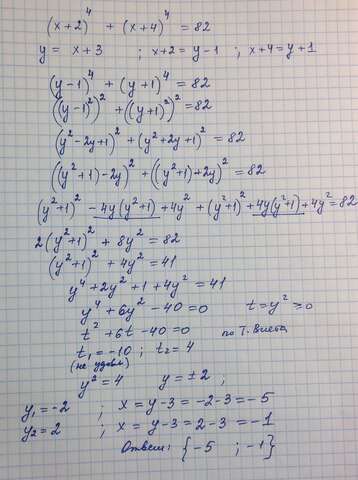 (x+2)⁴ + (x+4)⁴ = 82
y = x+3 ; x+2 = y-1 ; x+4 = y+1
(y-1)⁴ + (y+1)⁴ = 82
((y-1)²)² + ((y+1)²)² = 82
(y²-2y+1)² + (y²+2y+1)² = 82
((y²+1)-2y)² + ((y²+1)+2y)² = 82
(y²+1)² - 4y(y²+1) + 4y² + (y²+1)² + 4y(y²+1) + 4y² = 82
2(y²+1)² + 8y² = 82
(y²+1)² + 4y² = 41
y⁴ + 2y² + 1 + 4y² = 41
y⁴ + 6y² - 40 = 0 t = y² ≥ 0
t² + 6t - 40 = 0 по т. Виета
t₁ = -10 ; t₂ = 4
(не удовл)
y² = 4 y = ±2 ;
y₁ = -2 ; x = y-3 = -2-3 = -5
y₂ = 2 ; x = y-3 = 2-3 = -1
Ответ: {-5 ; -1}